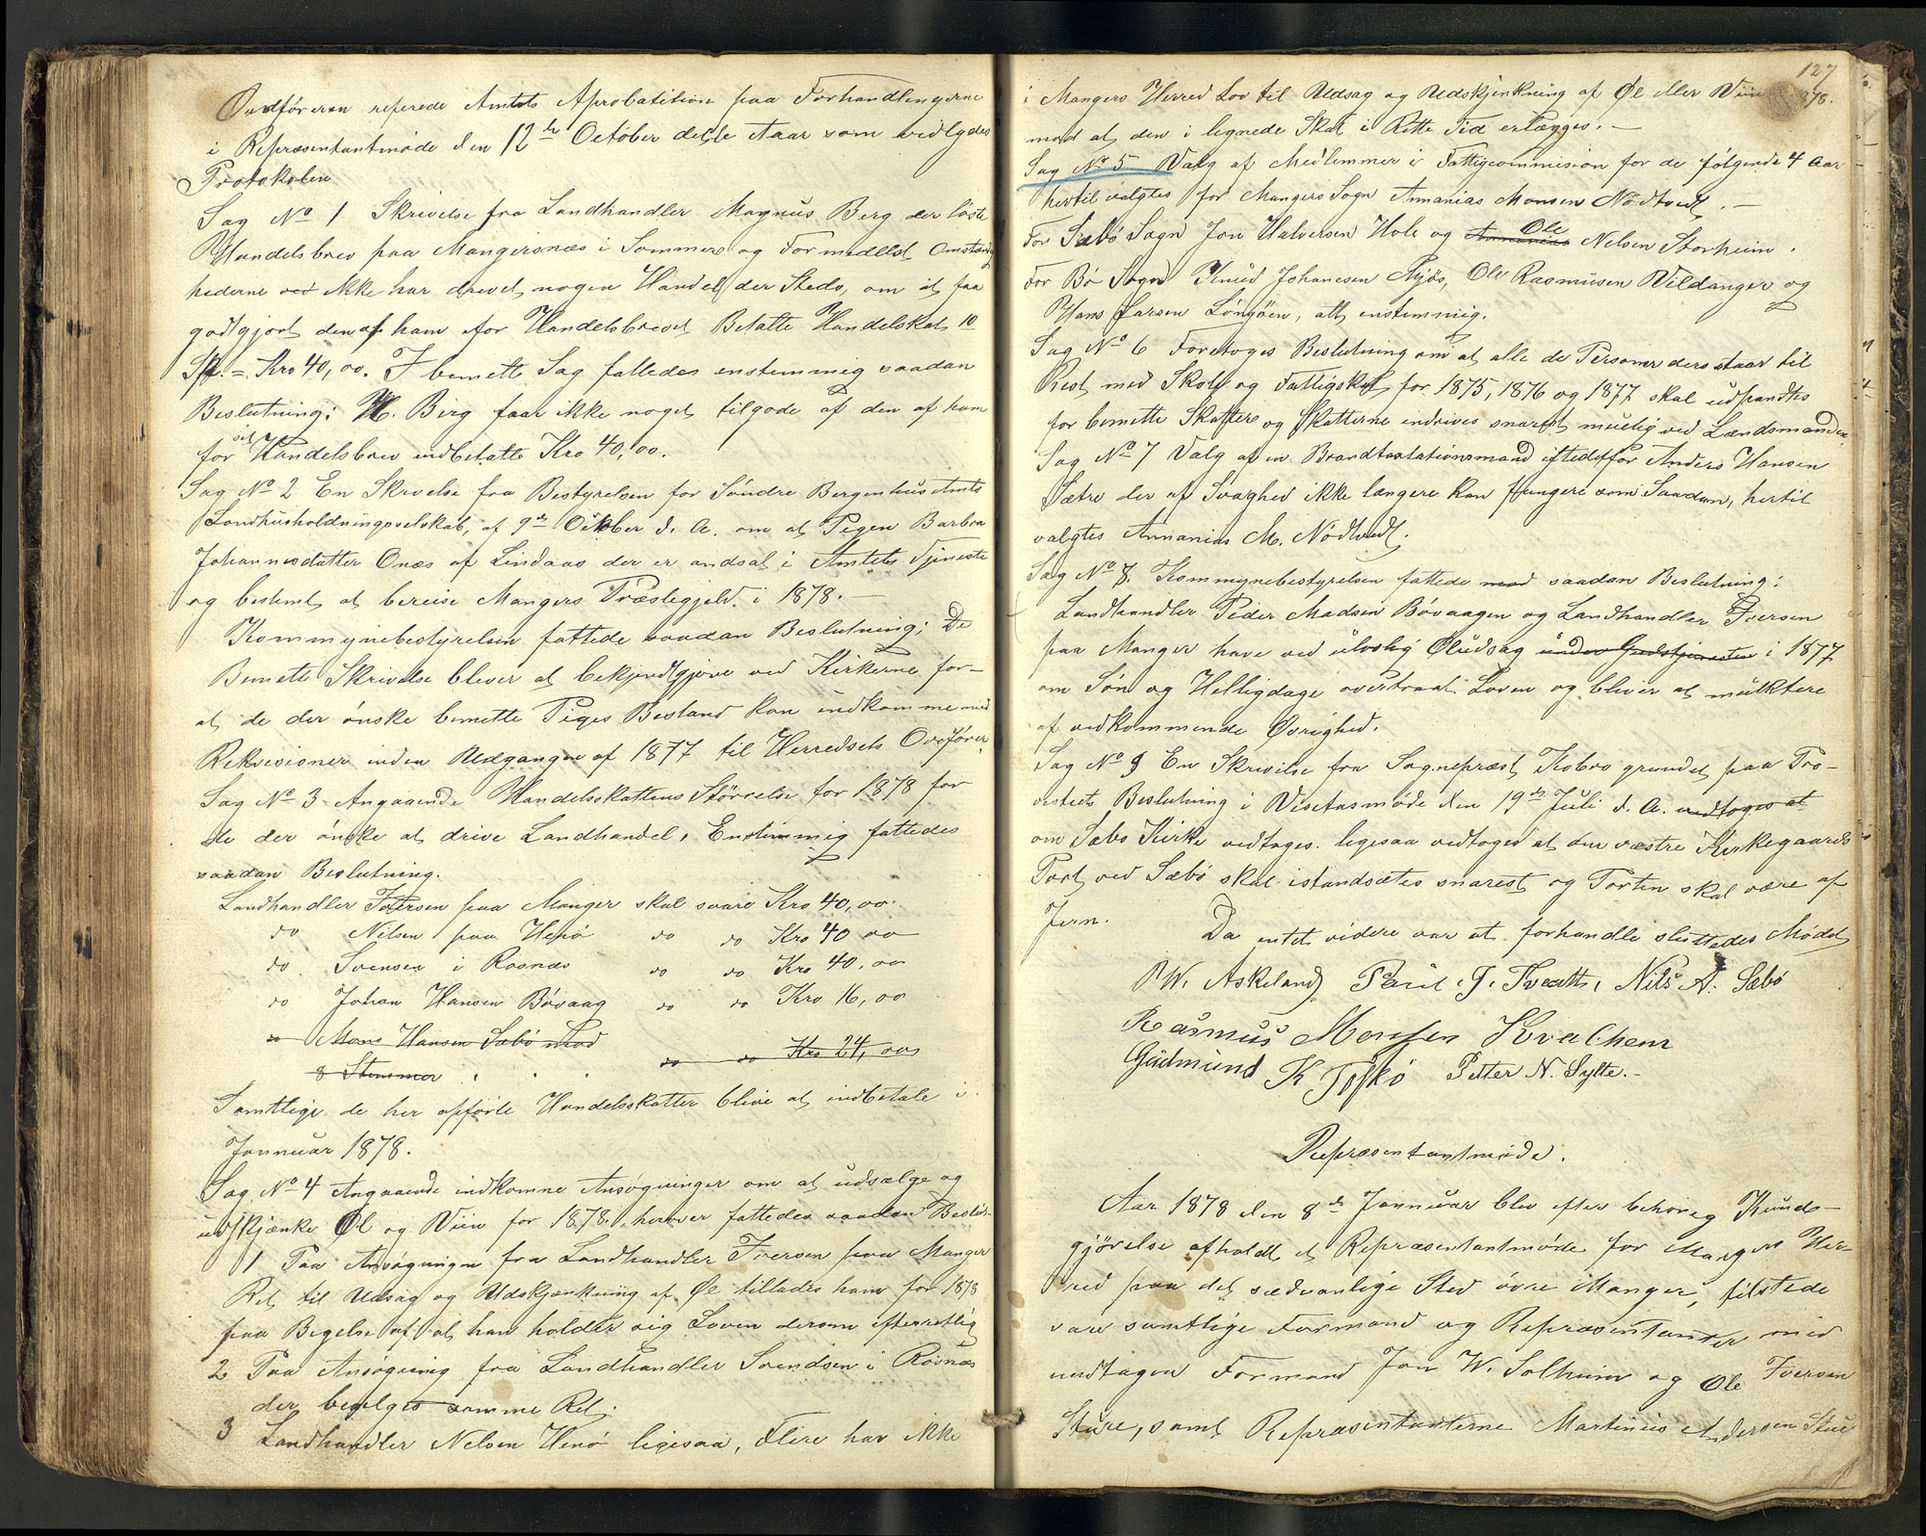 Ordföreren refererede Amtets Aprobatition paa Forhandlingerne
i Repræsentantmøde den 12te October dette Aaar som vedlydes
Protokolen
Sag No 1 Skrivelse fra Landhandler Magnus Berg der løste
Handelsbrev paa Mangersnæs i Sommer og Formedelst Omstæn
hederne ved ikke har drevet nogen Handel der Steds, om at faa
godtgjort den af ham for Handelsbrevet Betalte Handelskat 10
Spd. = Kro 40,00. I bemelte Sag fattedes enstemmig saadan
Beslutning: M. Berg faar ikke noget tilgode af den af ham
for sit Handelsbrev indbetalte Kro 40,00.
Sag No 2 En Skrivelse fra Bestyrelsen for Søndre Bergenhus Amts
Landhusholdningsselskab, af 9de Oktober d. A. om at Pigen Barbra
Johannesdatter Onæs af Lindaas der er andsat i Amtets Tjeneste
og bestemt at bereise Mangers Præstegjeld i 1878. —
Kommynebestyrelsen fattede saadan Beslutning: De
Bemelte Skrivelse bliver at bekjendtgjøre ved Kirkerne for-
at de der ønske bemelte Piges Bestand kan indkomme med
Rekvisioner inden Udgangen af 1877 til Herredets Ordfører
Sag No 3 Angaaende Handelsskattens Størrelse for 1878 for
de der ønske at drive Landhandel. Enstimmig fattedes
saadan Beslutning.
Landhandler Iversen paa Manger skal svare Kro 40,00.
do Nilsen paa Hesö do do Kro 40 00
do. Svensen i Rosnæs do do Kro 40,00
do Johan Hansen Bövaag do do Kro 16,00
do Mons Hansen Sæbö mod do do Kro 24,00
8 Stemmer
Samtlige de her opførte Handelsskatter blive at indbetale i
Jannuar 1878.
Sag No 4 Angaaende indkomne Ansøgninger om at udsælge og
udskjænke Øl og Viin for 1878. herover fattedes saadan Beslut-
1 Paa Ansøgningen fra Landhandler Iversen paa Manger
Ret til Udsag og Udskjænkning af Øl tillades ham for 1878
paa Begelse af at han holder sig Loven dersom efterretlig
2 Paa Ansøgning fra Landhandler Svendsen i Rosnæs
der bevilges samme Ret.
3 Landhandler Nelsen Hesö ligesaa, Flere har ikke
127
1878.
i Mangers Herred Lov til Udsag og Udskjenkning af Øl eller Viin
mod at den i lignede Skat i Rette Tid erlægges. —
Sag No 5 Valg af Medlemmer i Fattigcommision for de følgende 4 Aar
hertil valgtes for Mangers Sogn Annanias Monsen Nödtvedt. —
For Sæbö Sogn Jon Halversen Hole og Annanias Ole Nelsen Storheim.
For Bö Sogn Knud Johanesen Rylös, Ole Rasmusen Vildanger og
Hans Larsen Lönöen, alt enstemmig.
Sag No 6 Foretoges Beslutning om at alle de Personer der staar til
Rest med Skole og Fattigskat for 1875, 1876 og 1877 skal udpandtes
for bemelte Skatter og Skatterne indrives snarest muelig ved Lændsmanden
Sag No 7 Valg af en Brandtaxtationsmand istedetfor Anders Hansen
Sætre der af Svaghed ikke længere kan fungere som Saadan, hertil
valgtes Annanias M. Nödtvedt.
Sag No 8. Kommynebestyrelsen fattede med saadan Beslutning:
Landhandler Peder Madsen Bövaagen og Landhandler Iversen
paa Manger have ved ulovlig Øludsag under Gudstjenesten i 1877
om Søn og Helligdage overtraat Loven og bliver at mulktere
af vedkommende Øvrighed.
Sag No 9 En Skrivelse fra Sognepræst Kobro grundet paa Pro-
vistets Beslutning i Visetasmøde den 19de Juli d. A. vedtoges at
om Sæbo Kirke vedtages. ligesaa vedtoges at den væstre Kirkegaards
Port ved Sæbö skal istandsætes snarest og Porten skal være af
Jern.
Da intet videre var at forhandle sluttedes Mødet
W. Askeland Poul J. Tveatte, Nils A. Sæbö
Rasmus Monssen Kvalhem
Gudmund K Toskö Petter N. Sylte. -
Repræsentantmøde.
Aar 1878 den 8de Jannuar blev efter behøreg Kunds-
gjörelse afholdt et Repræsentantmøde for Mangers Her-
red paa det sædvanlige Sted övre Manger, tilstede
vare samtlige Formænd og Repræsentanter med
undtagen Formand Jon W. Solheim og Ole Iversen
Sture, samt Repræsentanterne Martinius Andersen Stue